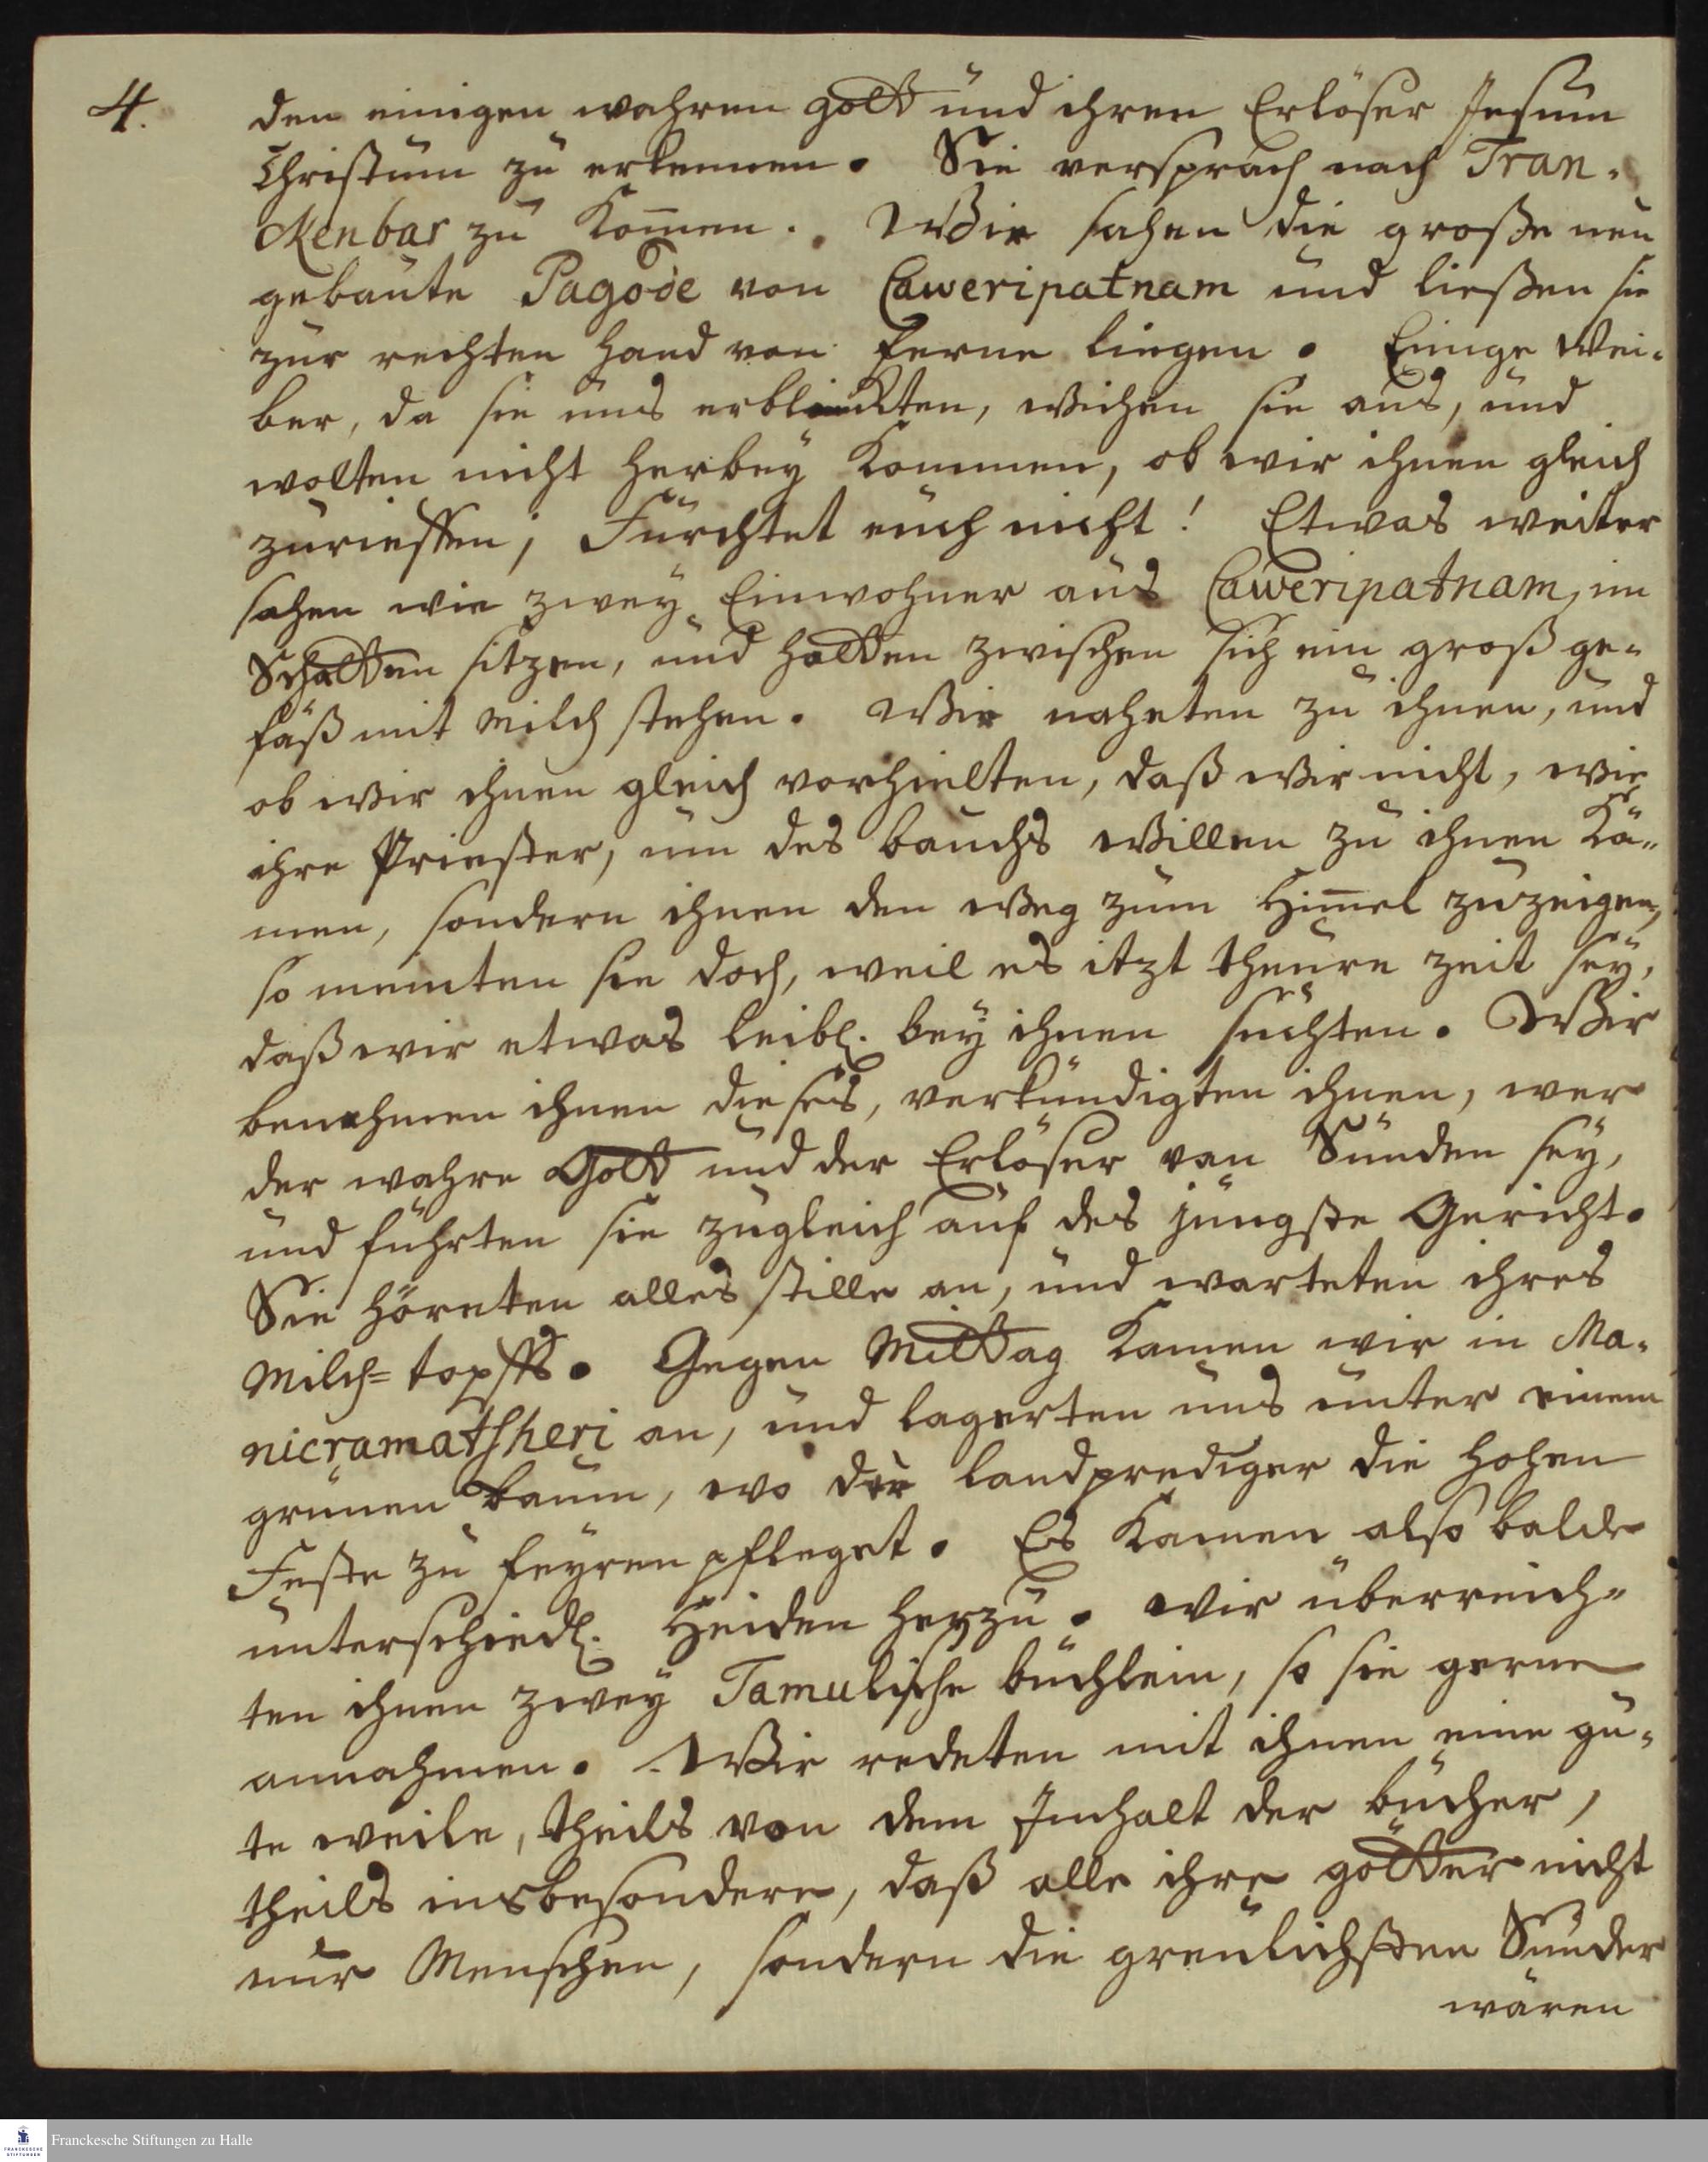 4.
den einigen wahren Gott und ihren Erlöser Jesum
Christum zu erkennen. Sie versprach nach Tran-
ckenbar zu kom̄en. Wir sahen die große neu
gebaute Pagode von Caweripatnam und ließen sie
zur rechten Hand von ferne liegen. Einige Wei-
ber, da sie uns erblickten, wichen sie aus, und
wolten nicht herbey kommen, ob wir ihnen gleich
zurieffen; Fürchtet euch nicht! Etwas weiter
sahen wir zwey Einwohner aus Caweripatnam, im
Schatten sitzen, und hatten zwischen sich ein groß ge-
fäß mit Milch stehen. Wir naheten zu ihnen, und
ob wir ihnen gleich vorhielten, daß wir nicht, wie
ihre Priester, um des bauchs willen zu ihnen kä-
men, sondern ihnen den Weg zum Him̄el zu zeigen,
so meinten sie doch, weil es itzt theure Zeit sey,
daß wir etwas leibl. bey ihnen suchten. Wir
benahmen ihnen dieses, verkündigten ihnen, wer
der wahre Gott und der Erlöser von Sünden sey,
und führten sie zugleich auf das jüngste Gericht.
Sie höreten alles stille an, und warteten ihres
Milch=topffs. Gegen Mittag kamen wir in Ma-
nicramatsheri an, und lagerten uns unter einem
grünen Baum, wo der Landprediger die hohen
Feste zu feyren pfleget. Es kamen also balde
unterschiedl. Heiden herzu. Wir überreich-
ten ihnen zwey Tamulische büchlein, so sie gerne
annahmen. Wir redeten mit ihnen eine gu-
te weile, theils von dem Inhalt der bücher,
theils insbesondere, daß alle ihre götter nicht
nur Menschen, sondern die greulichsten Sünder
wären
Franckesche Stiftungen zu Halle